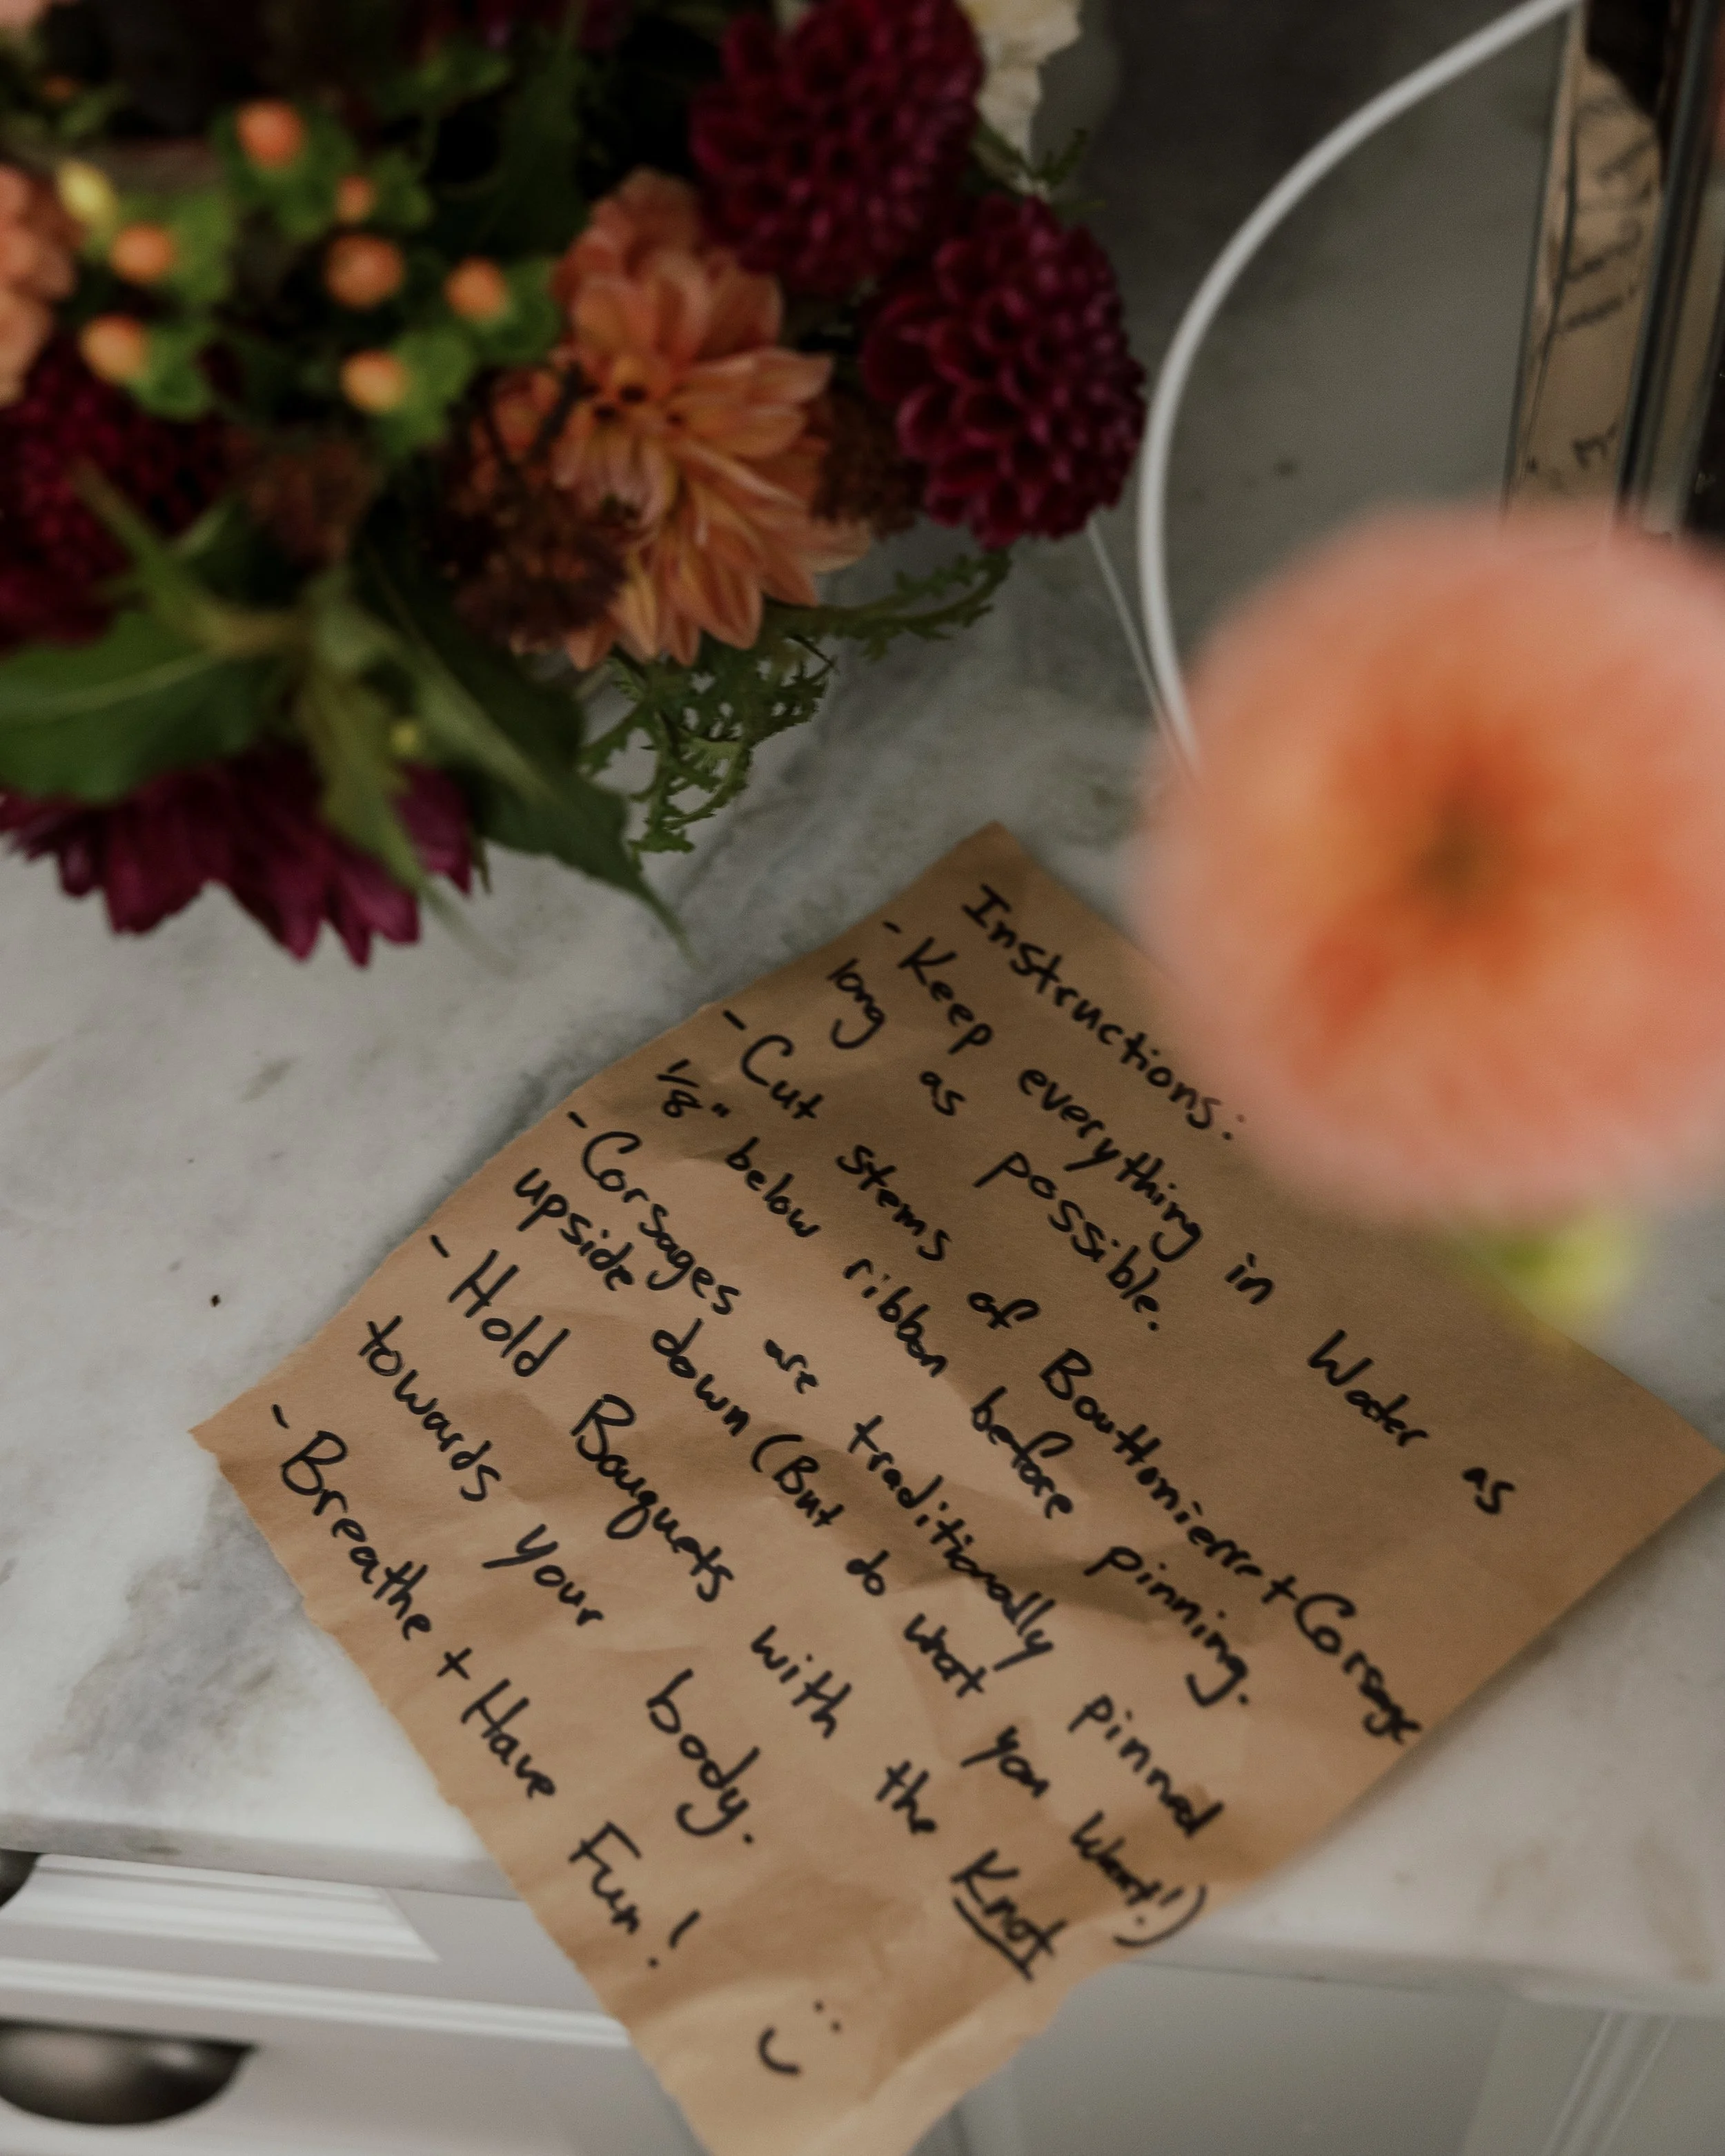 Instructions:
- Keep everything in Water as
long as possible.
- Cut stems of Bouttonierre + Corsage
1/8" below ribbon before pinning.
- Corsages are traditionally pinned
upside down (But do what you want!)
- Hold Bouquets with the Knot
towards your body.
- Breathe + Have Fun!
:)